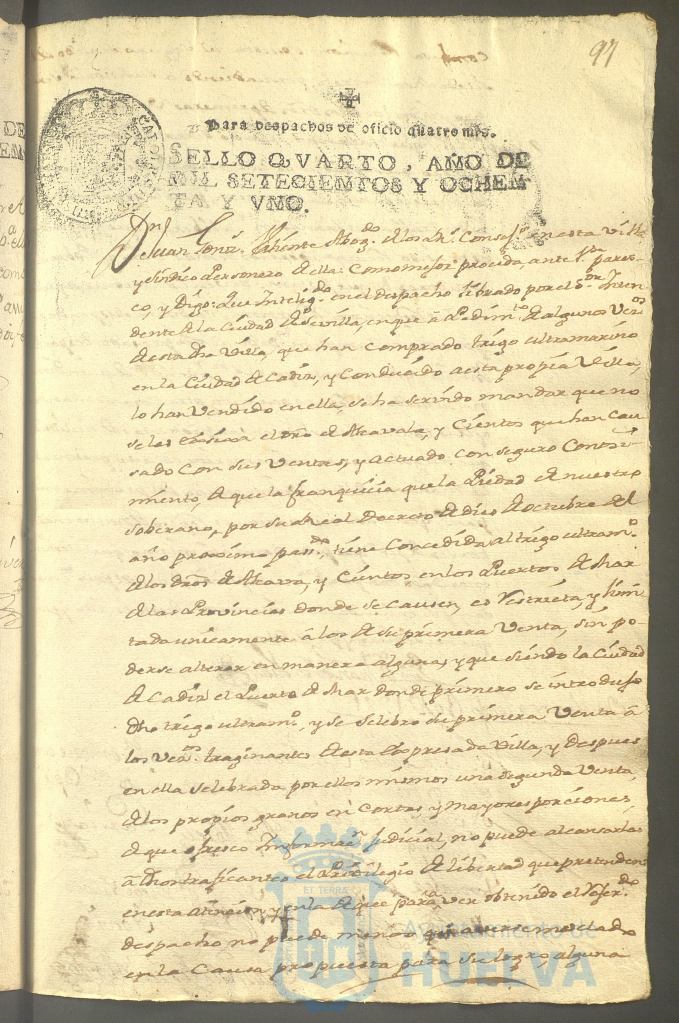 97
Para despachos de oficio quatro mrs.
SELLO QVARTO, AÑO DE
MIL SETECIENTOS Y OCHEN
TA Y VNO.
Dn. Juan Abog.do de los Rs. Consejos en esta Villa
y Sindico Personero de ella: como mejor proceda, ante Vmd. pares-
co, y Digo: Que Intelig.do en el despacho librado por el Sor. Inten
dente de la Ciudad de Sevilla, en que â Pedim.to de algunos Vecos.
de esta dha Villa, que han comprado trigo ultramarino
en la Ciudad de Cadiz, y Conducido a esta propia Villa,
lo han Vendido en ella, se ha servido mandar que no
se les el dro. de Alcavala, y Cientos que han Cau
sado con sus Ventas, y actuado con seguro Conosi-
miento, de que la franquicia que la Piedad de nuestro
soberano, por su Real Decreto de dies de octubre del
año proximo pasdo., tiene Concedida al trigo ultramo.
de los dros. de Alcava, y Cientos en los Puertos de Mar
de las Provincias donde se Causen, es Restricta, y limi-
tada unicamente â los de su primera Venta, sin po-
derse alterar en manera alguna, y que siendo la Ciudad
de Cadiz el Puerto de Mar donde primero se introdujo
dho trigo ultramo., y se selebrò su primera Venta â
los Vecos. traginantes de esta Expresada Villa, y despues
en ella selebrada por ellos mismos una segunda Venta,
de los propios granos en Cortas, y mayores porciones,
de que ofresco Informacn. judicial, no puede alcansarles
â el Privilegio de libertad que pretenden
en esta atencion, y en la de que para ver obtenido el Refer.do
despacho no puede menos que averse mesclado
en la Causa propuesta para su logro, alguna
ET TERRÆ
Ayuntamiento de
HUELVA